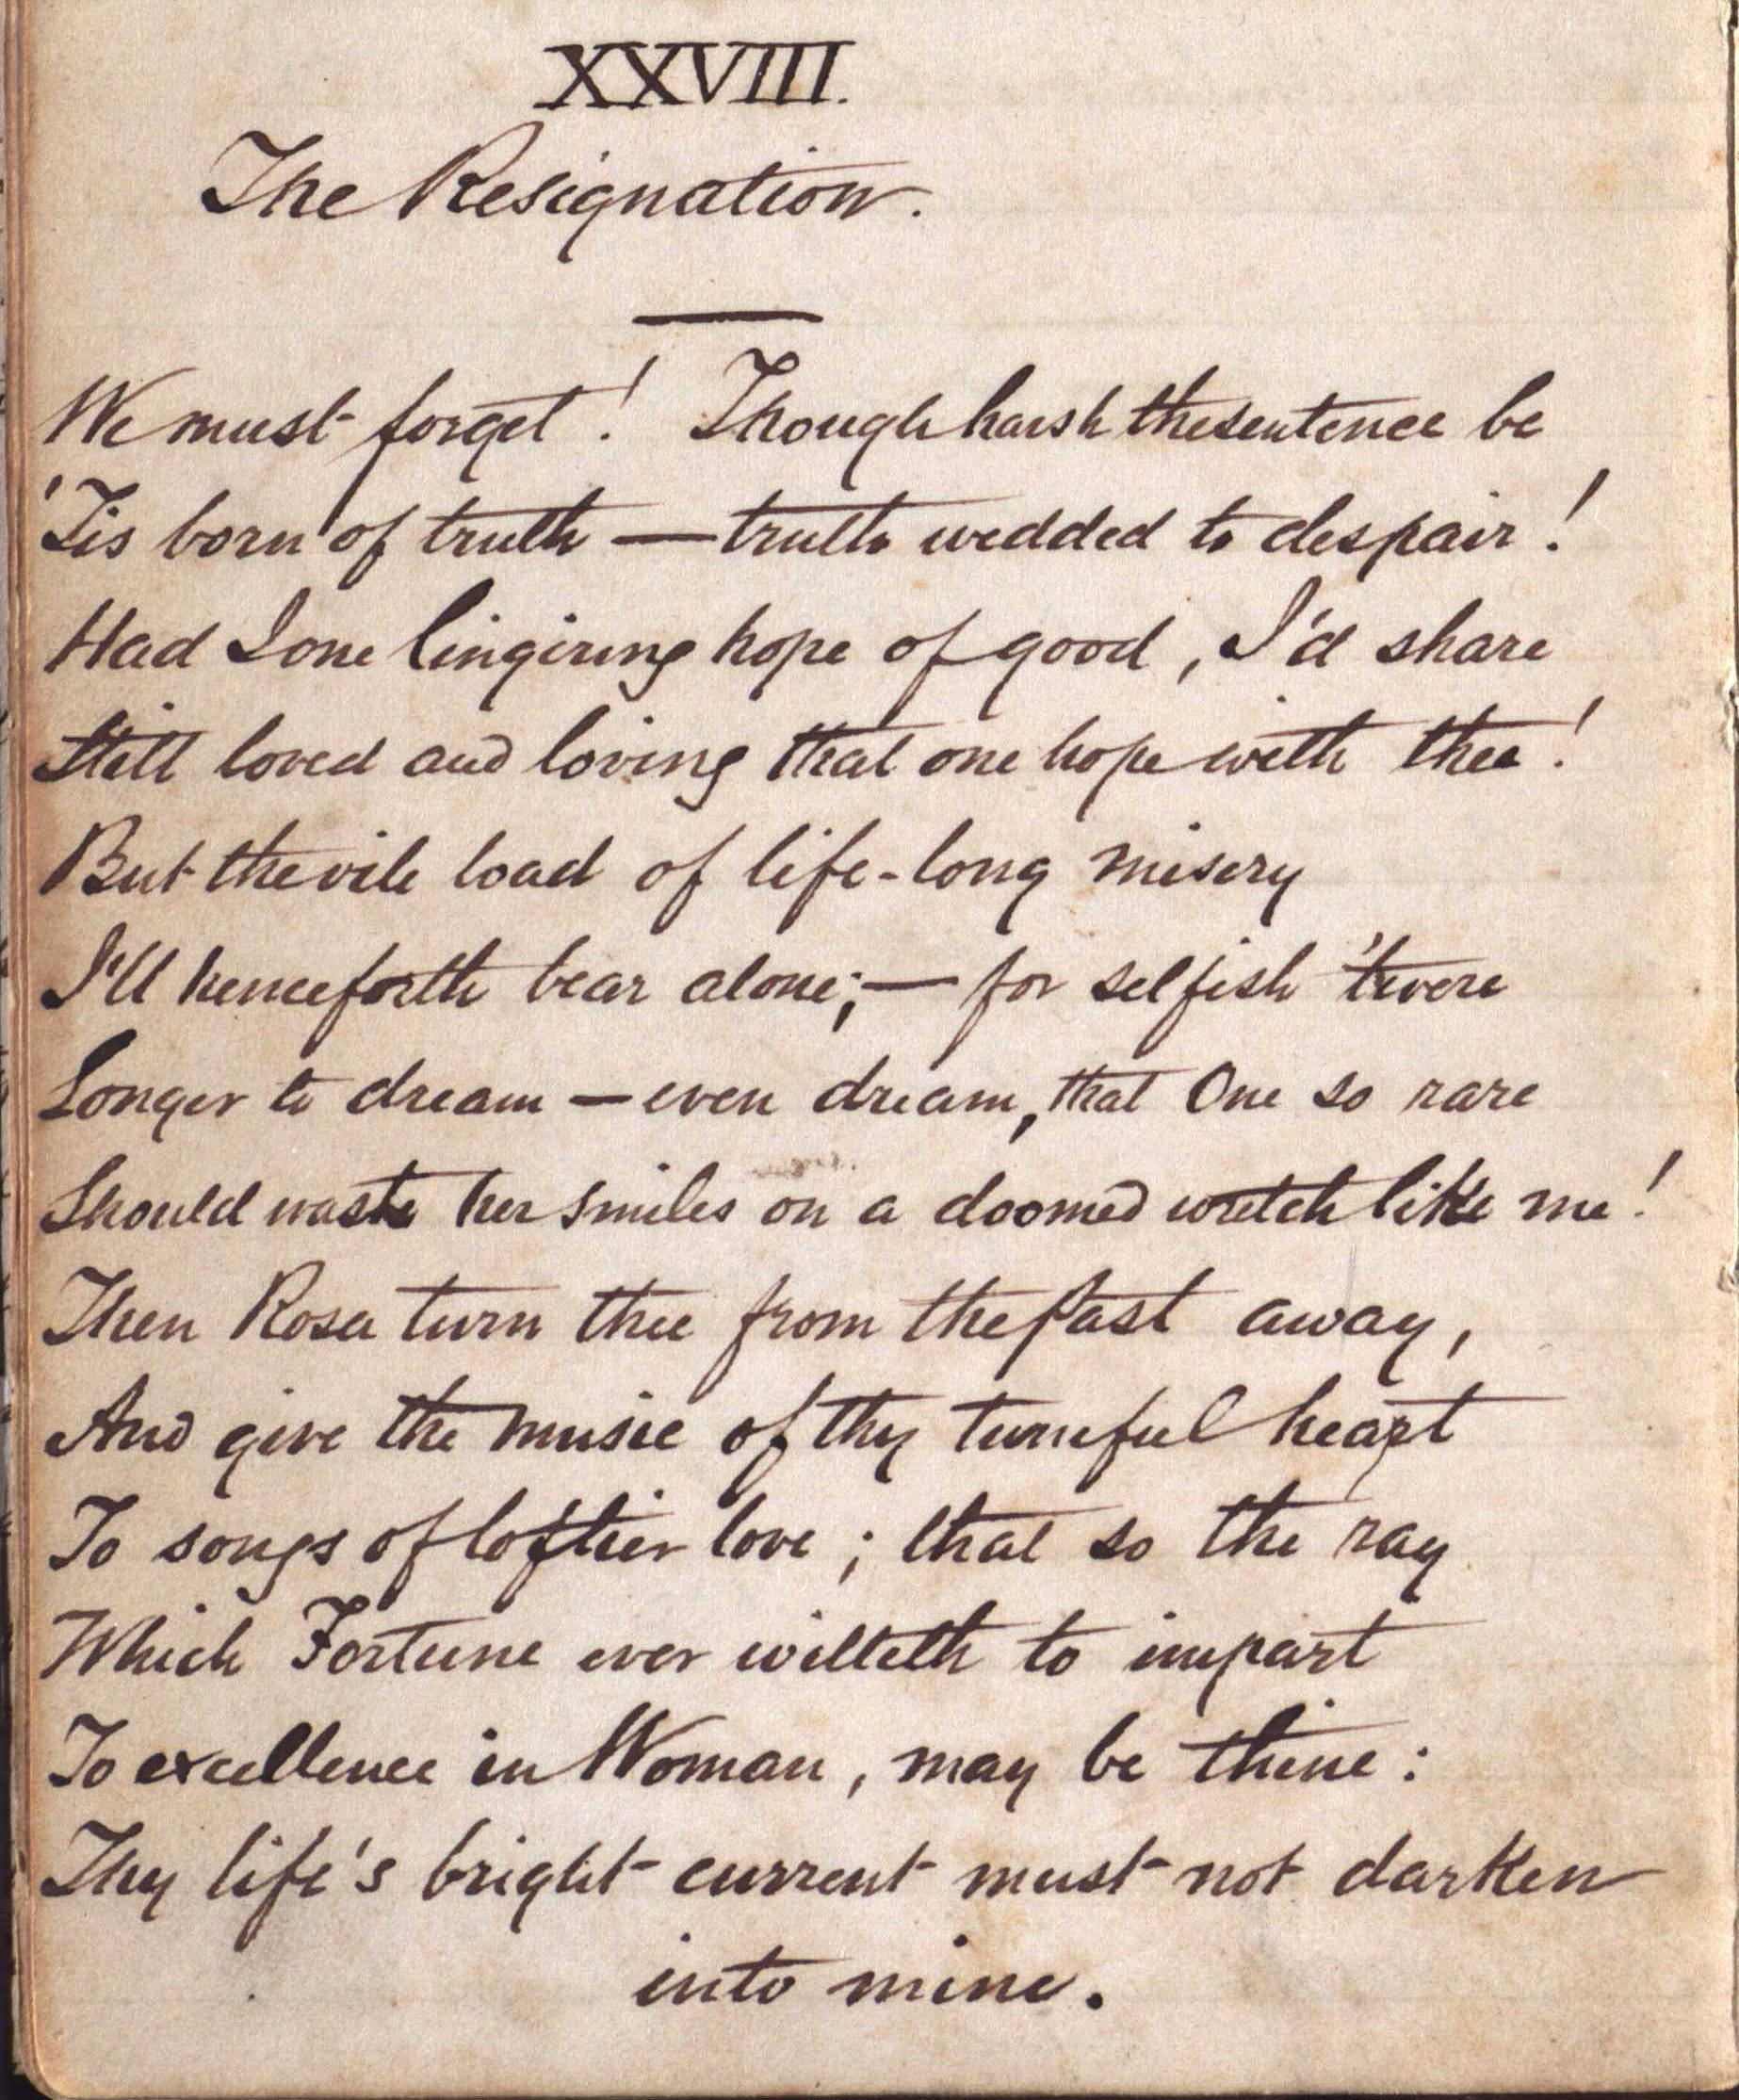 XXVIII.
The Resignation.
We must forget! Though harsh the sentence be
'Tis born of truth — truth wedded to despair!
Had I one lingiring hope of good, I'd share
Still loved and loving that one hope with thee!
But the vile load of life-long misery
I'll henceforth bear alone; — for selfish 'twere
Longer to dream — even dream, that One so rare
Should waste her smiles on a doomed wretch like me!
Then Rosa turn thee from the past away,
And give the music of thy tuneful heart
To songs of loftier love; that so the ray
Which Fortune ever willeth to impart
To excellence in Woman, may be thine:
Thy life's bright current must not darken
into mine.